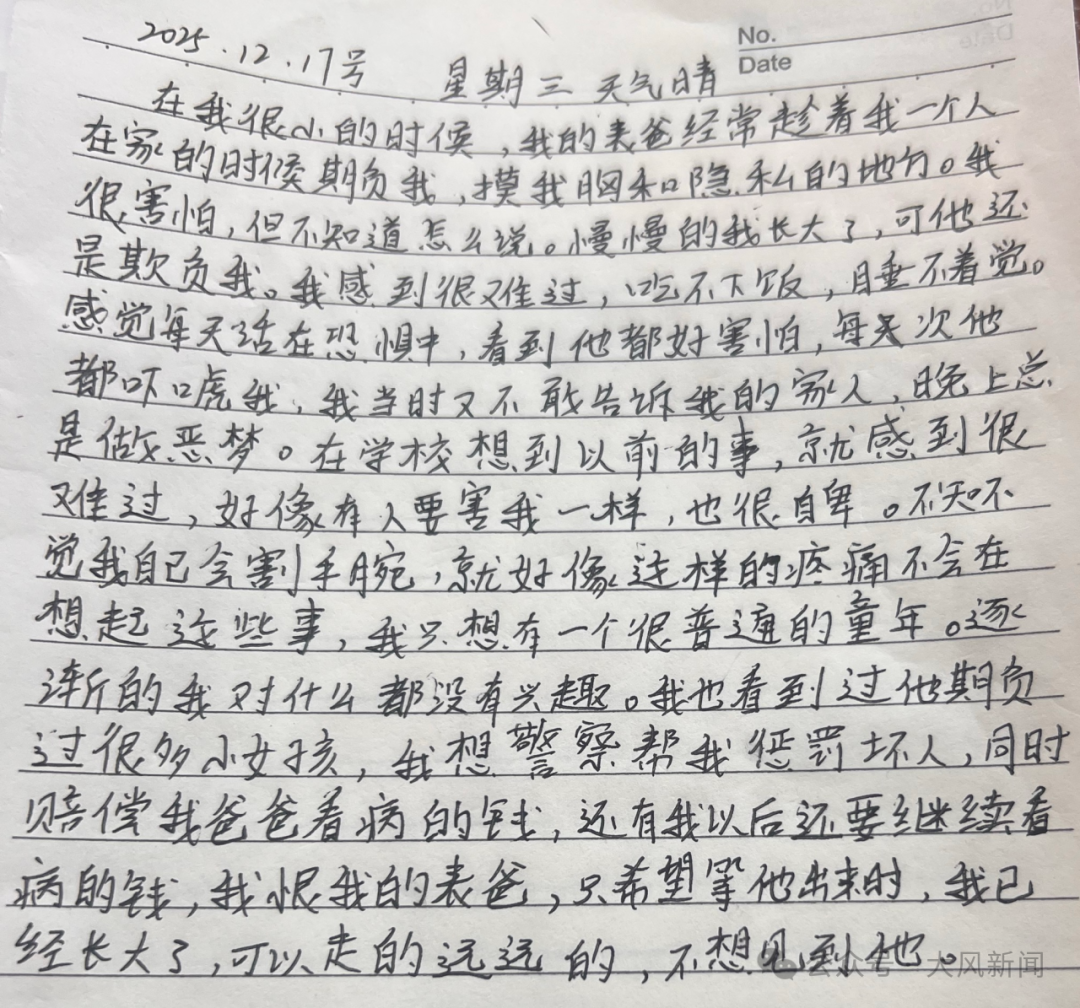 No.
Date
2025.12.17号 星期三 天气晴
在我很小的时候，我的表爸经常趁着我一个人
在家的时候期负我，摸我胸和隐私的地方。我
很害怕，但不知道怎么说。慢慢的我长大了，可他还
是欺负我。我感到很难过，吃不下饭，睡不着觉。
感觉每天活在恐惧中，看到他都好害怕，每次他
都吓唬我，我当时又不敢告诉我的家人，晚上总
是做恶梦。在学校想到以前的事，就感到很
难过，好像有人要害我一样，也很自卑。不知不
觉我自己会割手腕，就好像这样的疼痛不会在
想起这些事，我只想有一个很普通的童年。逐
渐的我对什么都没有兴趣。我也看到过他期负
过很多小女孩，我想警察帮我惩罚坏人，同时
赔偿我爸爸看病的钱，还有我以后还要继续看
病的钱，我恨我的表爸，只希望等他出来时，我已
经长大了，可以走的远远的，不想见到他。
公众号 大风新闻